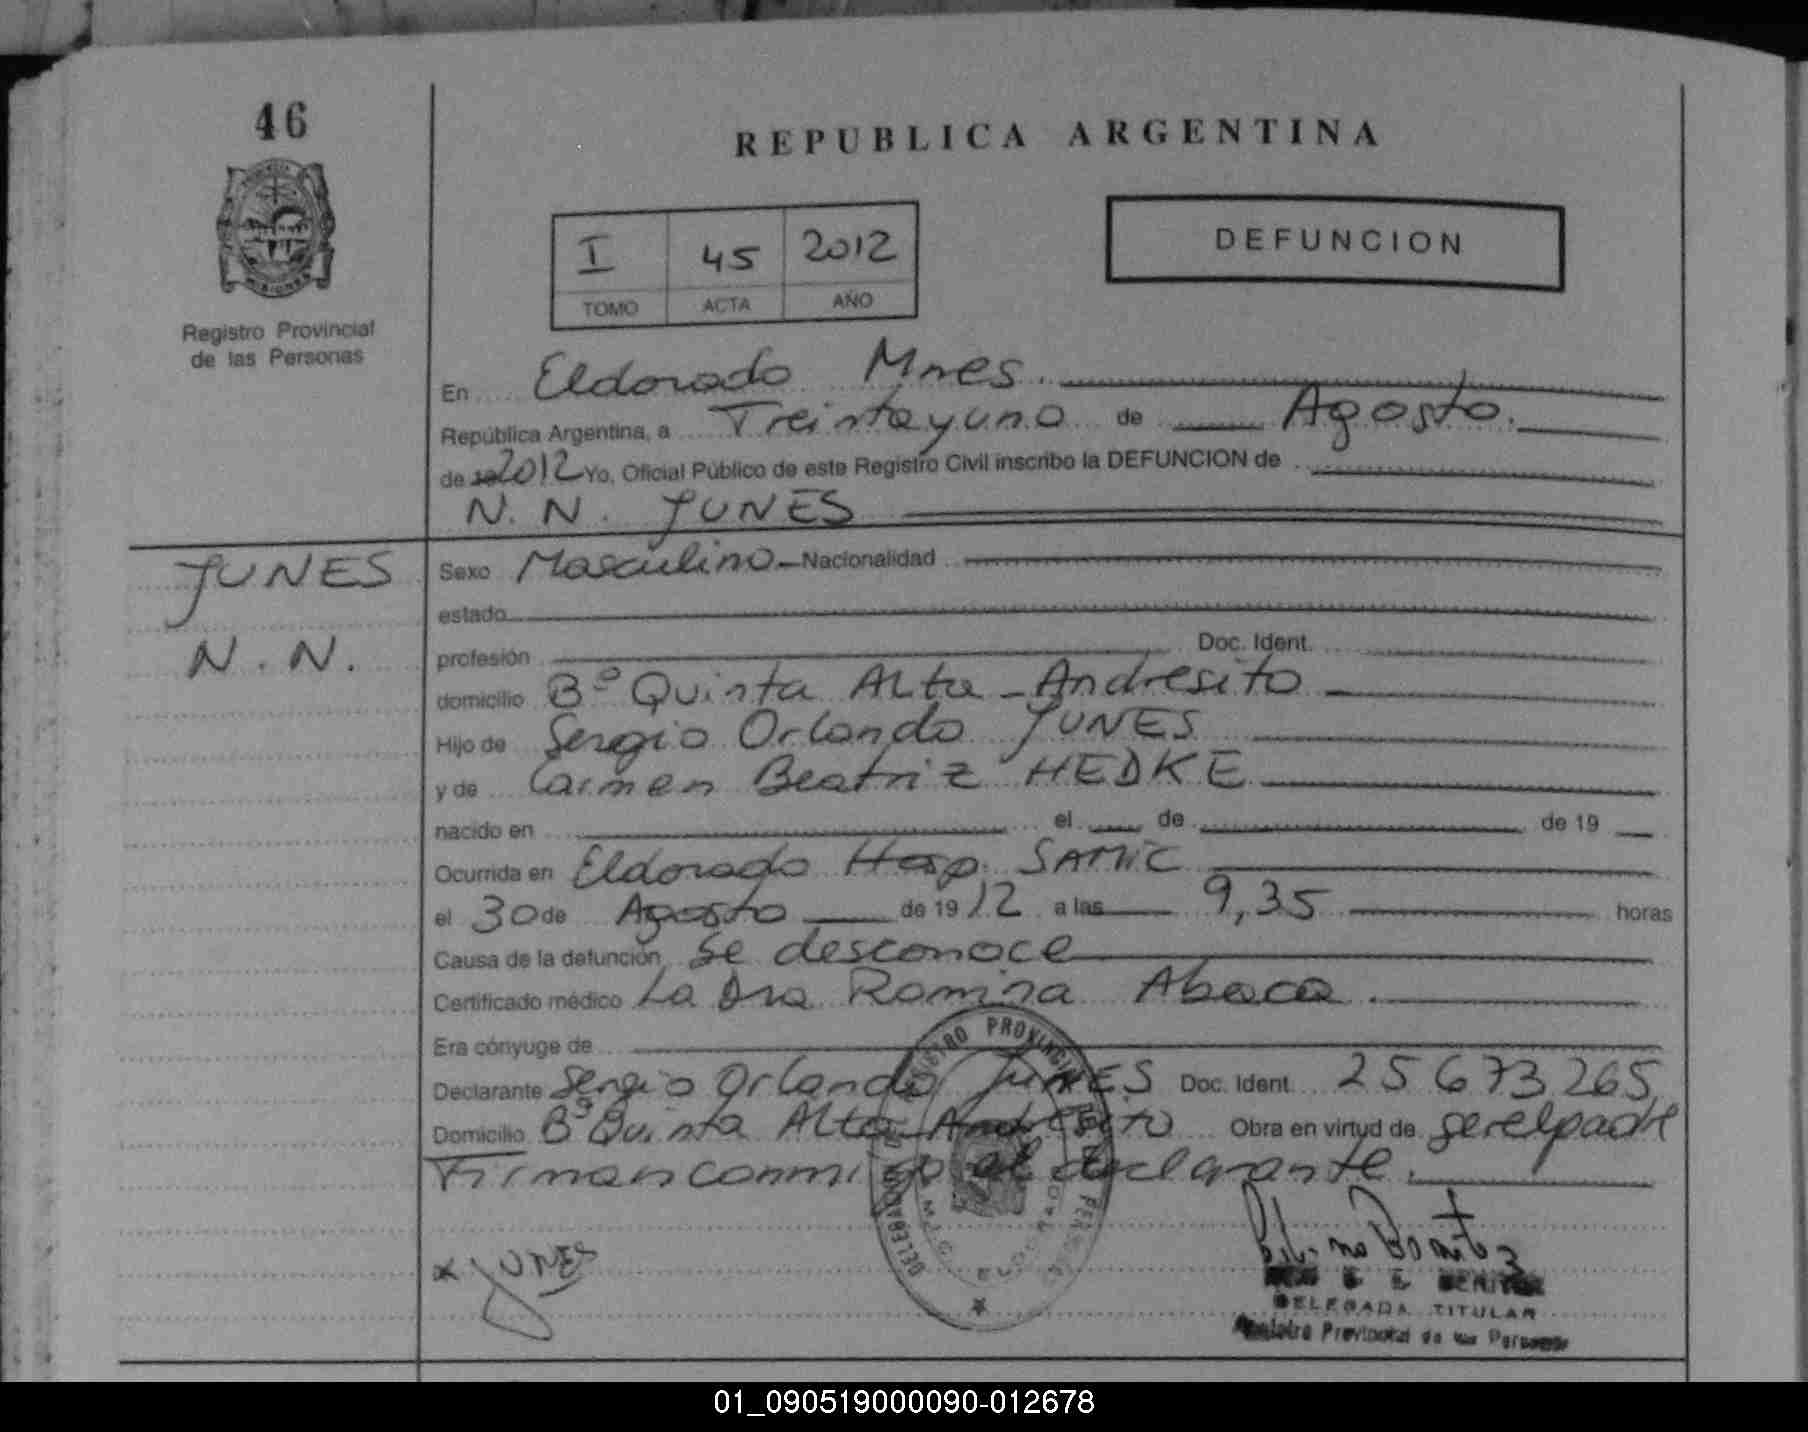 46
REPUBLICA ARGENTINA
I 45 2012
TOMO ACTA AÑO
DEFUNCION
MISIONES
Registro Provincial
de las Personas
En Eldorado Mnes.
República Argentina, a Treinta y uno de Agosto.
de 19 2012 Yo, Oficial Público de este Registro Civil inscribo la DEFUNCION de
N. N. JUNES
JUNES
N. N.
Sexo Masculino Nacionalidad
estado
profesión Doc. Ident.
domicilio Bº Quinta Alta - Andresito
Hijo de Sergio Orlando JUNES
y de Carmen Beatriz HEDKE
nacido en el de de 19
Ocurrida en Eldorado Hosp. SAMIC
el 30 de Agosto de 19 12 a las 9,35 horas
Causa de la defunción Se desconoce
Certificado médico La Dra Romina Abaca.
Era cónyuge de
Declarante Sergio Orlando JUNES Doc. Ident. 25 673 265
Domicilio Bº Quinta Alta Andresito Obra en virtud de ser el padre
Firman conmigo el declarante.
REGISTRO PROVINCIAL DE LAS PERSONAS
DELEGACION
ELDORADO
x JUNES
DELEGADA TITULAR
Registro Provincial de las Personas
01_090519000090-012678